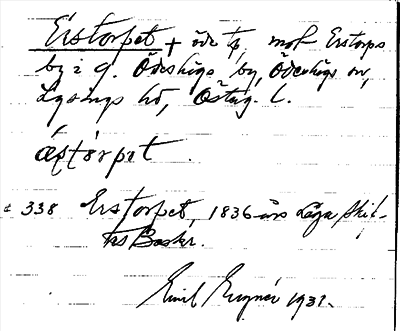 Erstorpet + öde tp, mot Erstorps
by i g. Ödeshögs by, Ödeshögs sn,
Lysings hd, Östg. l.
æʂʈɵrpət.
338 Erstorpet, 1836 års Laga skif-
tes Beskr.
Emil Engnér 1932.